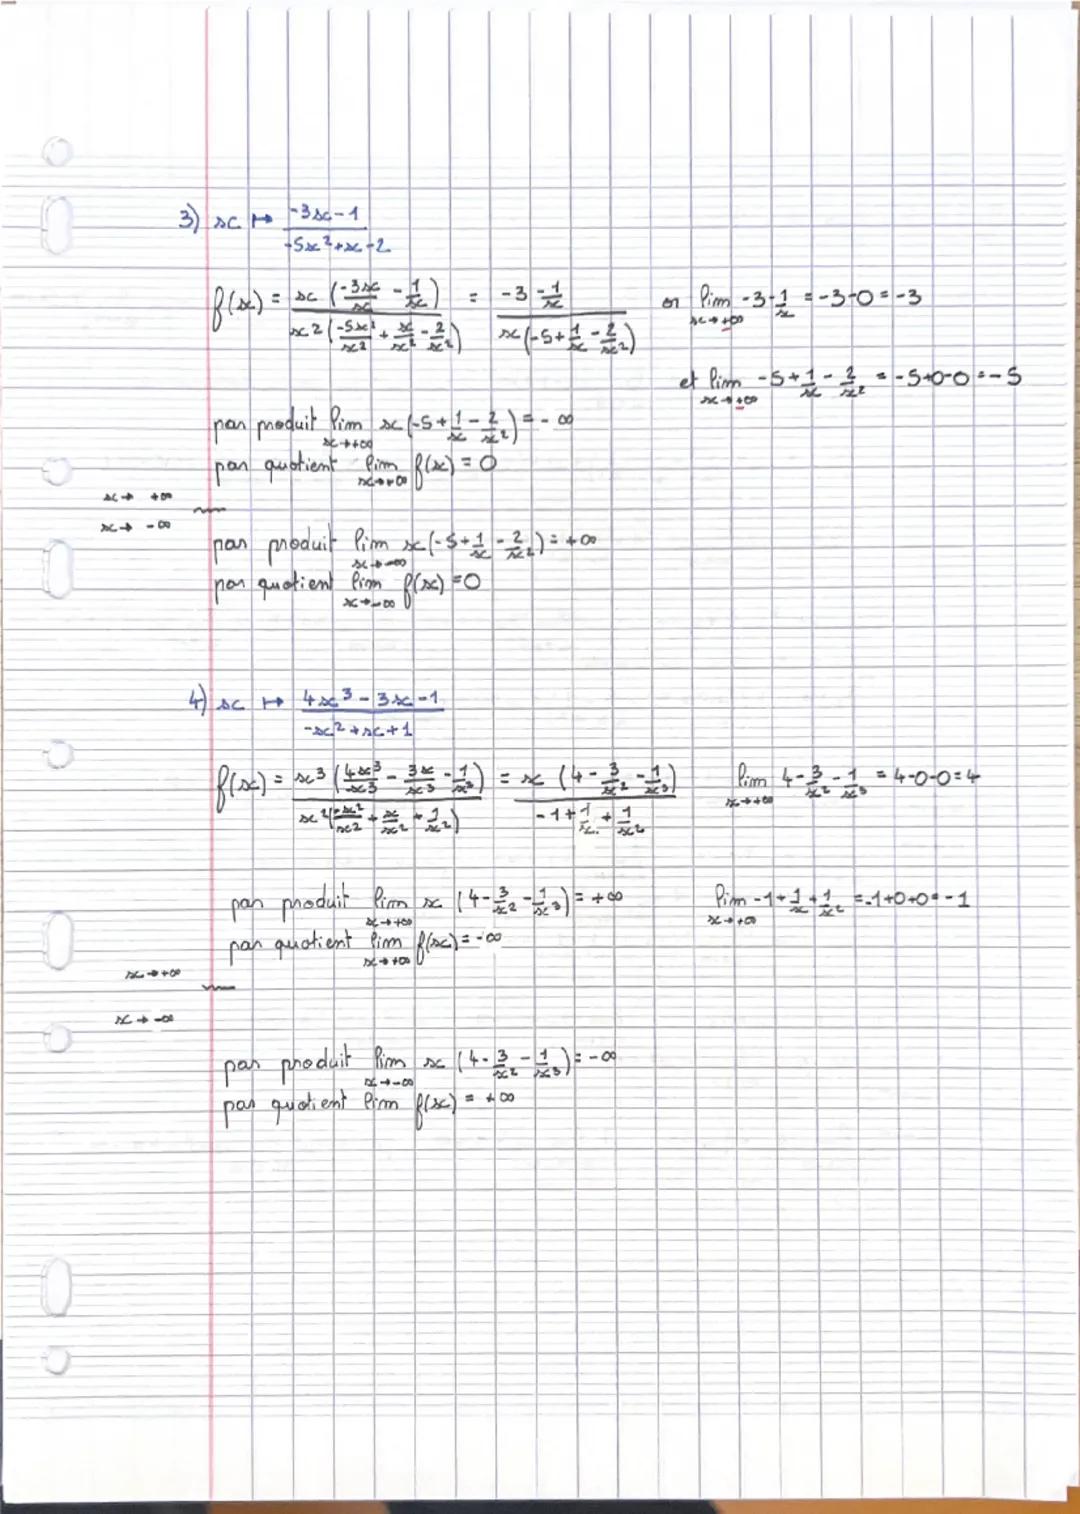 3) x ↦ (-3x-1)/(-5x²+x-2)
f(x) = x(-3x/x - 1/x) / x²(-5x²/x² + x/x² - 2/x²) = (-3 - 1/x) / x(-5 + 1/x - 2/x²) or lim x→+∞ -3 - 1/x = -3-0 = -3
et lim x→+∞ -5 + 1/x - 2/x² = -5+0-0 = -5
par produit lim x→+∞ x(-5 + 1/x - 2/x²) = -∞
par quotient lim x→+∞ f(x) = 0
x→ +∞
x→ -∞
par produit lim x→-∞ x(-5 + 1/x - 2/x²) = +∞
par quotient lim x→-∞ f(x) = 0
4) x ↦ (4x³-3x-1)/(-x²+x+1)
f(x) = x³(4x³/x³ - 3x/x³ - 1/x³) / x²(-x²/x² + x/x² + 1/x²) = x(4 - 3/x² - 1/x³) / (-1 + 1/x + 1/x²) lim x→+∞ 4 - 3/x² - 1/x³ = 4-0-0 = 4
par produit lim x→+∞ x(4 - 3/x² - 1/x³) = +∞ lim x→+∞ -1 + 1/x + 1/x² = -1+0+0 = -1
par quotient lim x→+∞ f(x) = -∞
x→+∞
x→-∞
par produit lim x→-∞ x(4 - 3/x² - 1/x³) = -∞
par quotient lim f(x) = +∞